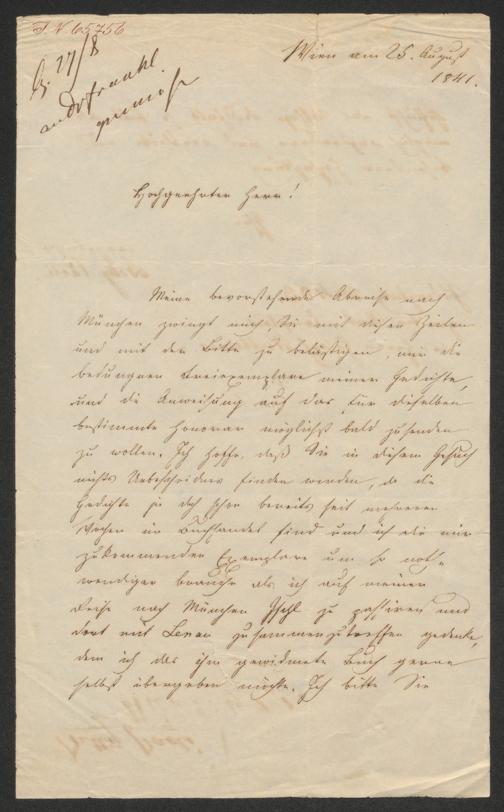 I. N. 65756
B. 27/8
Wien am 25. August
1841.
Hochgeehrter Herr!
Meine bevorstehende Abreise nach
München zwingt mich Sie mit diesen Zeilen
und mit der Bitte zu belästigen, mir die
bedungnen Freiexemplare meiner Gedichte,
und die Anweisung auf das für dieselben
bestimmte Honorar möglichst bald zusenden
zu wollen. Ich hoffe, daß Sie in diesem Gesuch
nichts Unbescheidnes finden werden, da die
Gedichte ja doch schon bereits seit mehreren
Wochen im Buchhandel sind und ich die mir
zukommenden Exemplare um so noth-
wendiger brauche als ich auf meiner
Reise nach München Ischl zu passiren und
dort mit Lenau zusammenzutreffen gedenke,
dem ich das ihm gewidmete Buch gerne
selbst übergeben möchte. Ich bitte Sie